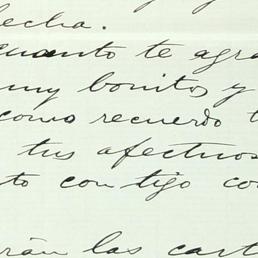 fecha.
cuanto te agra
muy bonitos y
como recuerdo t
tus afectuos
to contigo co
rán las cart